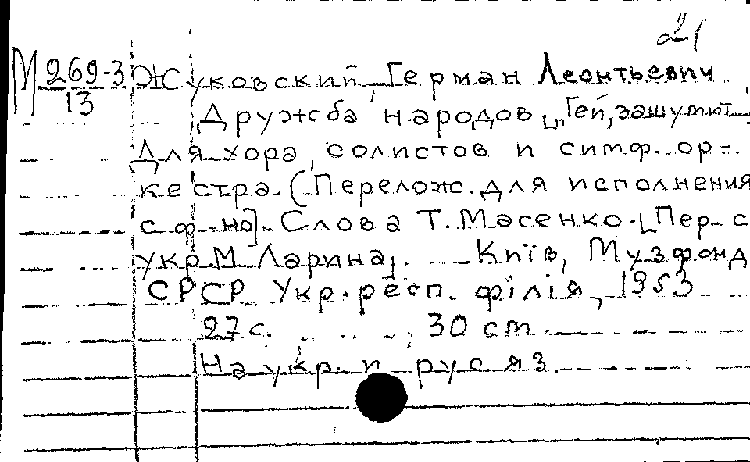 21
М 269-3 Жуковский, Герман Леонтьевич
13 Дружба народов „Гей, зашумит
Для хора, солистов и симф. ор-
кестра. (Перелож. для исполнения
с ф-но]. Слова Т. Масенко. [Пер. с
укр. М. Ларина]. Київ, Музфонд
СРСР Укр. респ. філія, 1953
27 с. 30 cm.
На укр. и рус яз.